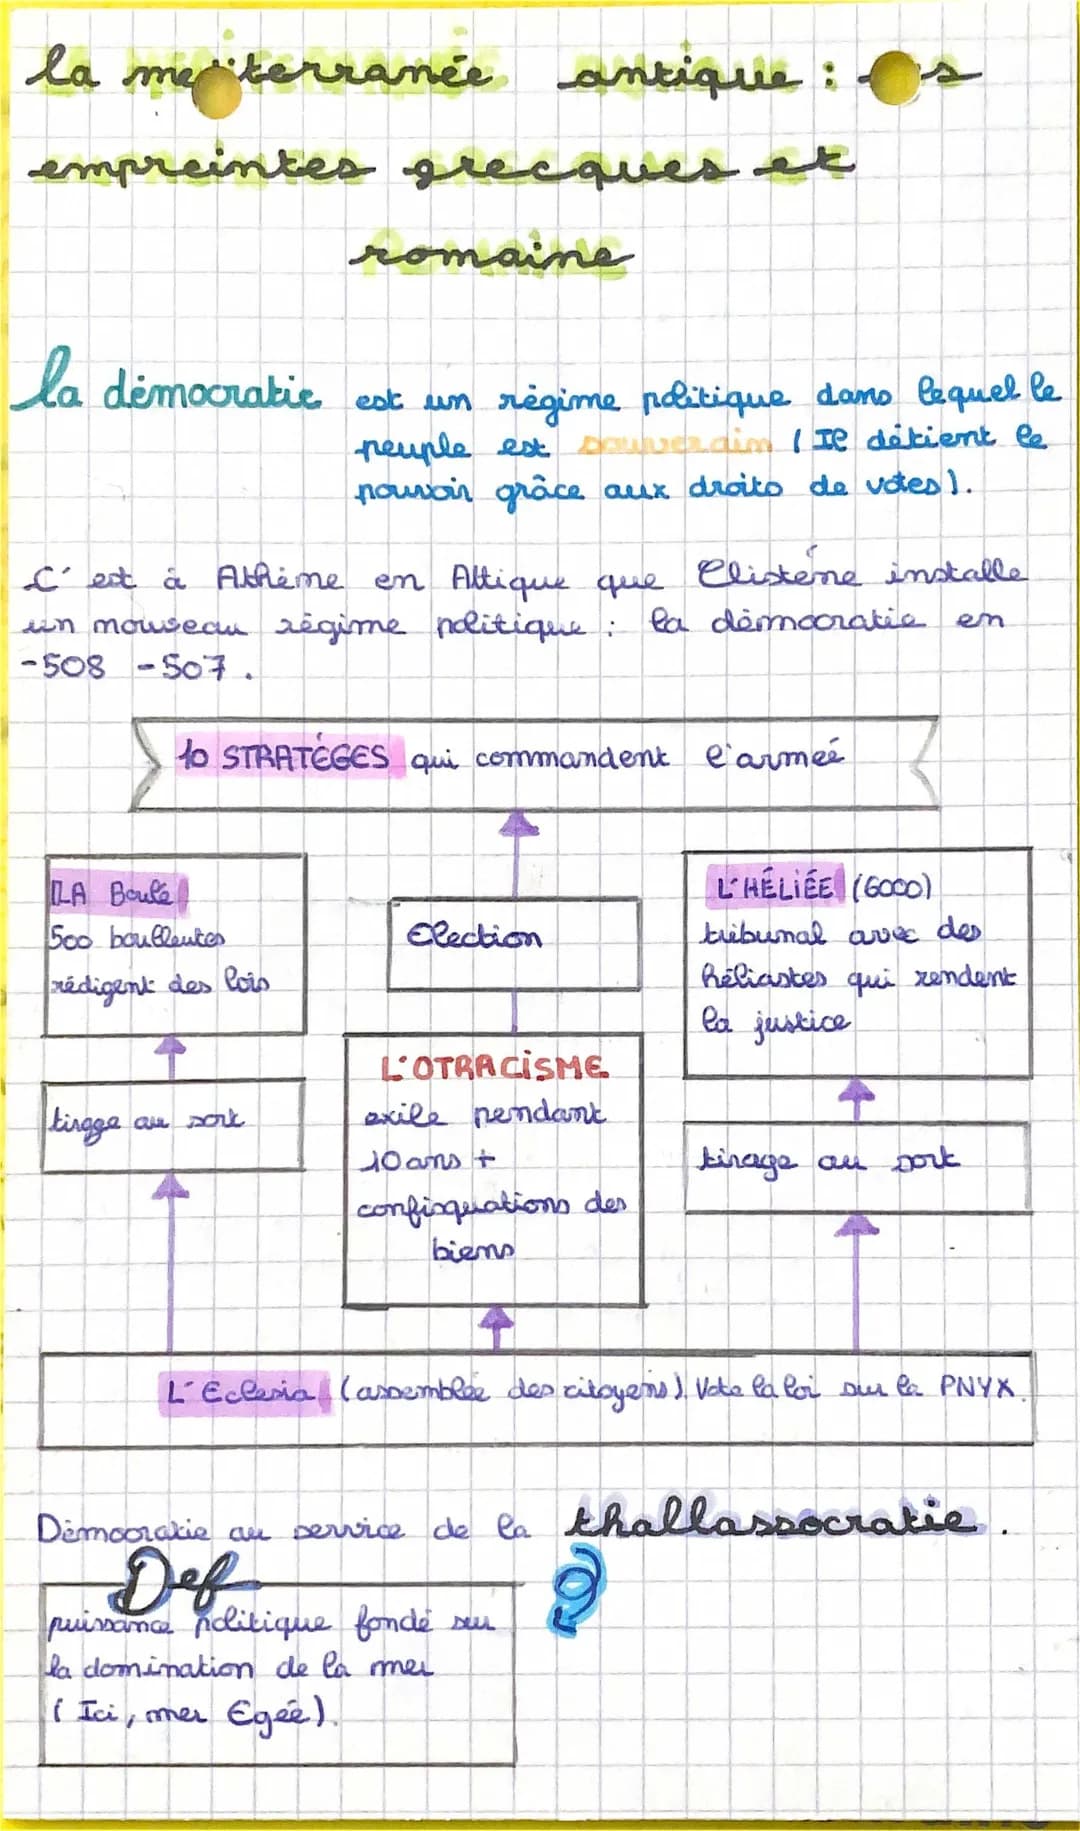 la mediterranée antique : s
empreintes grecques et
romaine
la démocratie est un régime politique dans lequel le
peuple est souverain ( Il détient le
pouvoir grâce aux droits de votes).
C'est à Athéne en Attique que Clisténe installe
un nouveau régime politique : la démocratie en
-508 -507.
10 STRATÉGES qui commandent l'armeé
LA Boulé
500 boulleutes
rédigent des lois
Election
L'HÉLIÉE (6000)
tribunal avec des
héliastes qui rendent
la justice
tirage au sort
L'OTRACISME
exile pendant
10 ans +
confisquations des
biens
tirage au sort
L'Eclesia (assemblée des citoyens). Vote la loi sur la PNYX.
Démocratie au service de la thallassocratie.
Def
puissance politique fondé sur
la domination de la mer
( Ici, mer Egée).